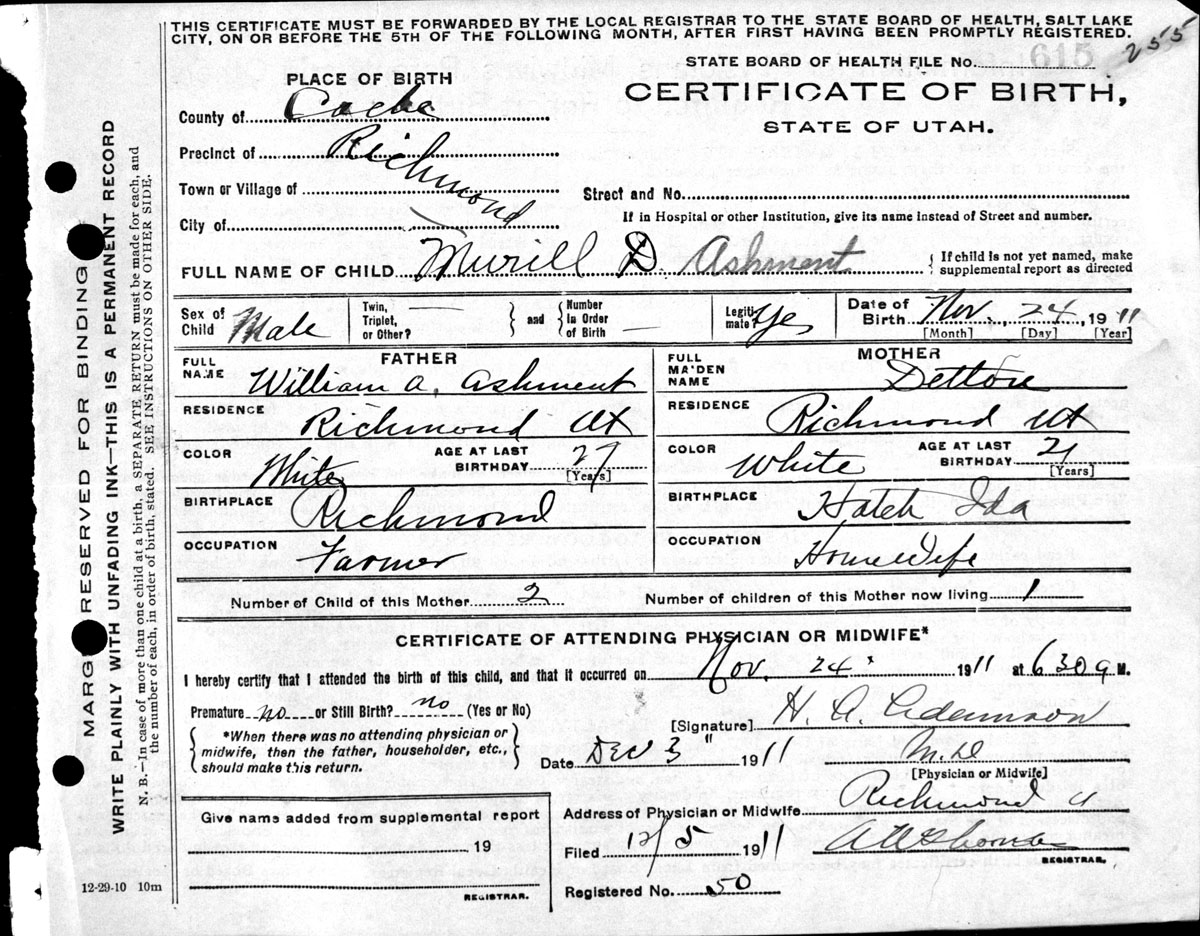 THIS CERTIFICATE MUST BE FORWARDED BY THE LOCAL REGISTRAR TO THE STATE BOARD OF HEALTH, SALT LAKE
CITY, ON OR BEFORE THE 5TH OF THE FOLLOWING MONTH, AFTER FIRST HAVING BEEN PROMPTLY REGISTERED.
255
STATE BOARD OF HEALTH FILE No. 615
PLACE OF BIRTH
CERTIFICATE OF BIRTH,
STATE OF UTAH.
County of Cache
Precinct of Richmond
Town or Village of
Street and No.
City of
If in Hospital or other Institution, give its name instead of Street and number.
FULL NAME OF CHILD Murill D. Ashment
{ If child is not yet named, make
supplemental report as directed
Sex of Child Male
Twin, Triplet, or Other? — } and { Number In Order of Birth —
Legitimate? Yes
Date of Birth Nov. 24, 1911
[Month] [Day] [Year]
FATHER
FULL NAME William A. Ashment
RESIDENCE Richmond Ut
COLOR White AGE AT LAST BIRTHDAY 27 [Years]
BIRTHPLACE Richmond
OCCUPATION Farmer
MOTHER
FULL MAIDEN NAME
RESIDENCE Richmond Ut
COLOR White AGE AT LAST BIRTHDAY 21 [Years]
BIRTHPLACE Hatch Ida
OCCUPATION HouseWife
Number of Child of this Mother 2 Number of children of this Mother now living 1
CERTIFICATE OF ATTENDING PHYSICIAN OR MIDWIFE*
I hereby certify that I attended the birth of this child, and that it occurred on Nov. 24 1911 at 630 a M.
Premature no or Still Birth? no (Yes or No)
[Signature] H. A. Adamson
{ *When there was no attending physician or
midwife, then the father, householder, etc.,
should make this return. }
Date Dec 3" 1911
M.D
[Physician or Midwife]
Address of Physician or Midwife Richmond U
Give name added from supplemental report
19
REGISTRAR.
Filed 12/5 1911
REGISTRAR.
Registered No. 50
12-29-10 10m
MARGIN RESERVED FOR BINDING
WRITE PLAINLY WITH UNFADING INK—THIS IS A PERMANENT RECORD
N. B.—In case of more than one child at a birth, a SEPARATE RETURN must be made for each, and
the number of each, in order of birth, stated. SEE INSTRUCTIONS ON OTHER SIDE.